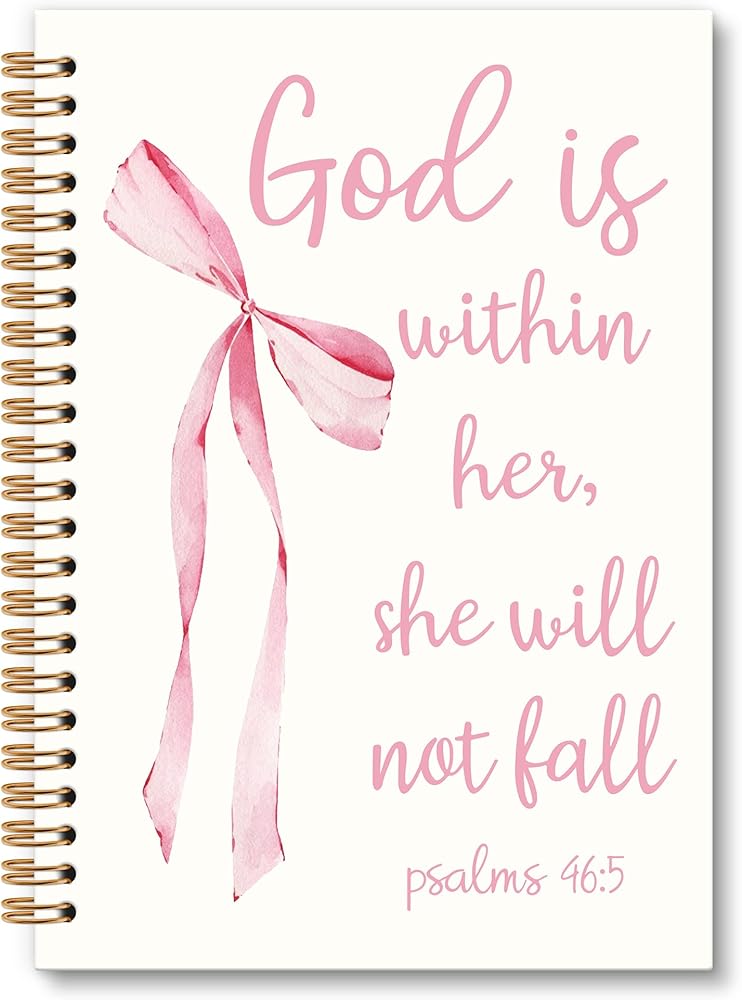 God is
within
her,
she will
not fall
psalms 46:5